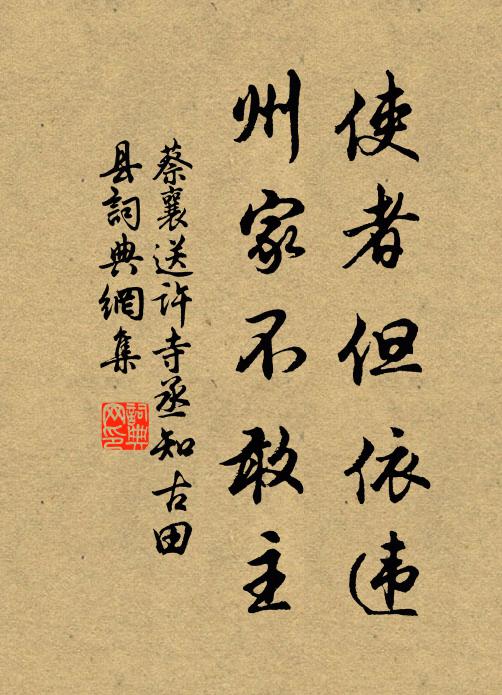 使者但依违
州家不敢主
蔡襄送许寺丞知古田
县詞典網集
詞典网印